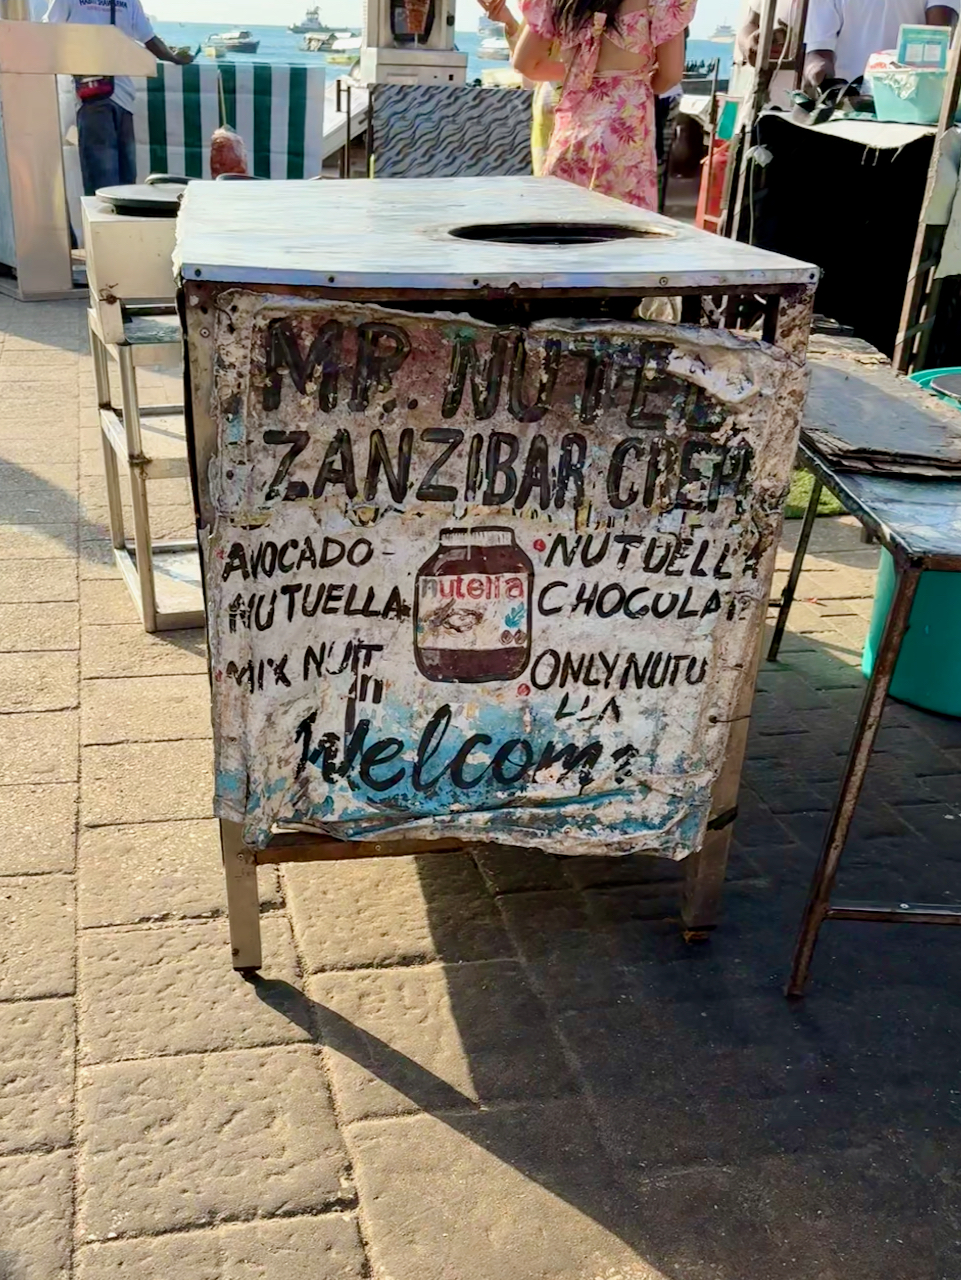 MR. NUTEL
ZANZIBAR CREP
AVOCADO-
NUTUELLA
MIX NUIT
nutella
NUTUELLA
CHOCOLAT
ONLY NUTU
LLA
Welcome